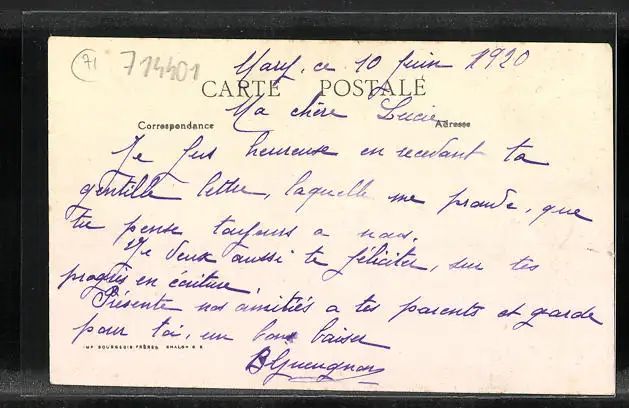 71 714401
Mary, ce 10 Juin 1920
CARTE POSTALE
Ma chère Lucie
Correspondance Adresse
Je fus heureuse en recevant ta
gentille lettre, laquelle me prouve, que
tu pense toujours a nous.
Je veux aussi te féliciter, sur tes
progrès en écriture.
Présente nos amitiés a tes parents et garde
pour toi, un bon baiser
IMP BOURGEOIS FRÈRES CHALON S S
B Gueugnon